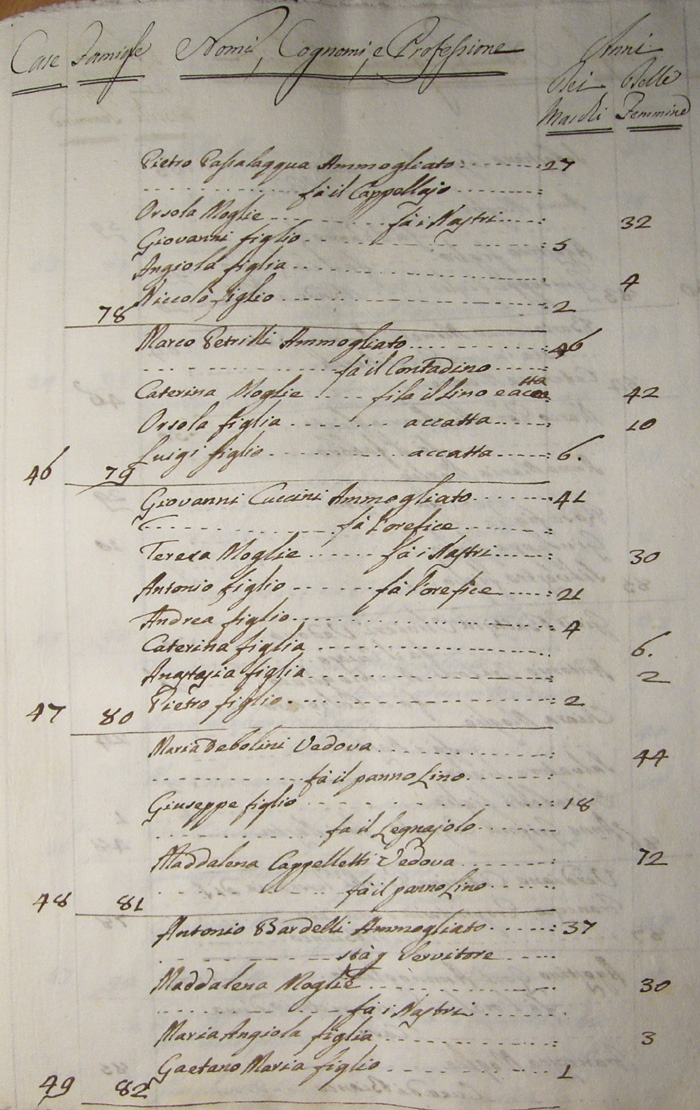 Case Famiglie Nomi, Cognomi, e Professione Anni
Dei Delle
Maschi Femmine
Pietro Passalaqqua Ammogliato 27
fà il Cappellajo
Orsola Moglie fà i Nastri 32
Giovanni figlio 5
Angiola figlia 4
78 Niccolò figlio 2
Marco Petrilli Ammogliato 46
fà il Contadino
Caterina Moglie fila il Lino e accatta 42
Orsola figlia accatta 10
46 79 Luigi figlio accatta 6.
Giovanni Cuccini Ammogliato 41
fà l'orefice
Teresa Moglie fà i Nastri 30
Antonio figlio fà l'orefice 21
Andrea figlio 4
Caterina figlia 6.
Anastasia figlia 2
47 80 Pietro figlio 2
Maria Debolini Vedova 44
fà il panno Lino
Giuseppe figlio 18
fa il Legnajolo
Maddalena Cappelletti Vedova 72
48 81 fà il panno Lino
Antonio Bardelli Ammogliato 37
stà Servitore
Maddalena Moglie 30
fà i Nastri
Maria Angiola figlia 3
49 82 Gaetano Maria figlio 1